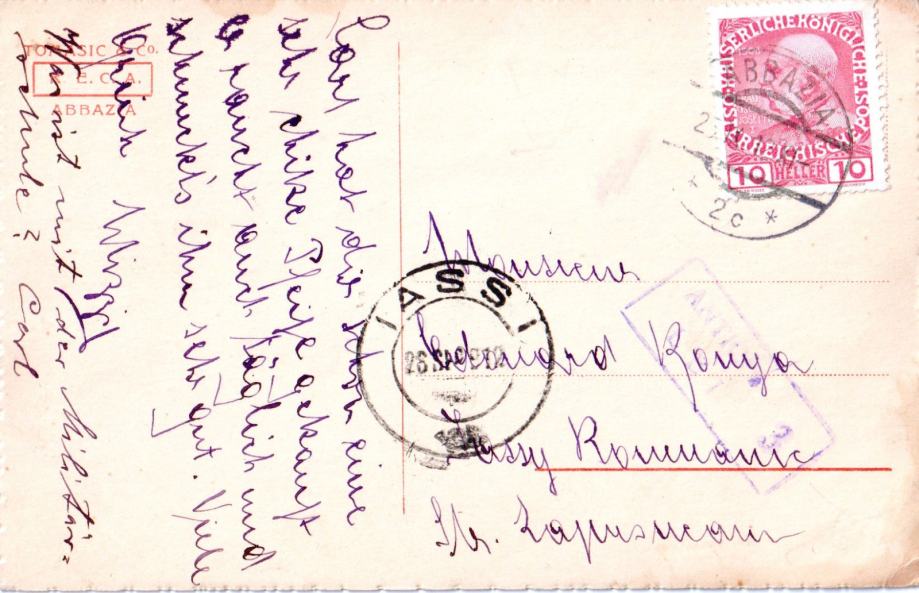 TOMASIC & Co.
E. C. A.
ABBAZIA
Carl hat schon eine
sehr chike Pfeife gekauft
& raucht auch täglich und
schmeckt's ihm sehr gut. Viele
Mizzl
Was ist mit der Militär=
schule? Carl
KAISERLICHE KÖNIGLICHE ÖSTERREICHISCHE
10 HELLER 10
ABBAZIA
* 2c *
IASSI
26
Monsieur
Edouard Konya
Jassy Roumanie
Str. Lapusneanu